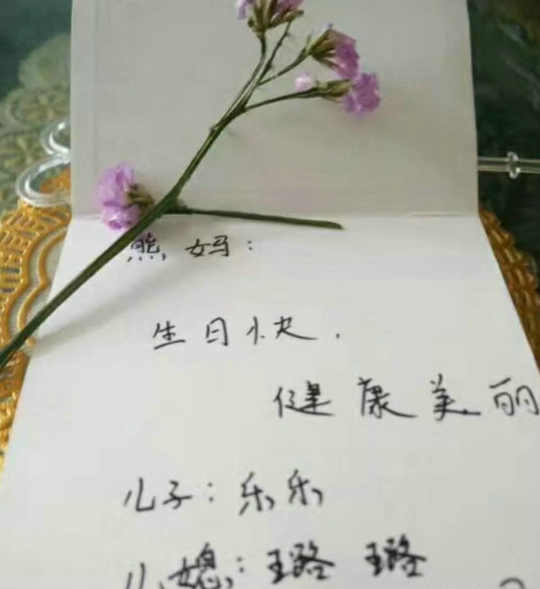 熊妈：
生日快.
健康美丽
儿子：乐乐
儿媳：璐璐